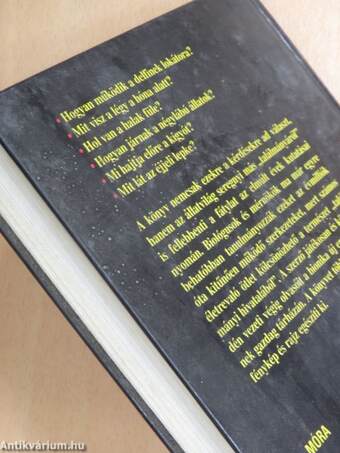 Hogyan működik a delfinek lokátora?
Mit visz a légy a hóna alatt?
Hol van a halak füle?
Hogyan járnak a négylábú állatok?
Mi hajtja előre a kígyót?
Mit lát az éjjeli lepke?
A könyv nemcsak ezekre a kérdésekre ad választ,
hanem az állatvilág seregnyi más „találmányáról"
is fellebbenti a fátylat az elmúlt évek kutatásai
nyomán. Biológusok és mérnökök ma már egyre
behatóbban tanulmányozzák ezeket az évmilliók
óta kitűnően működő szerkezeteket, mert számos
életrevaló ötlet kölcsönözhető a természet
mányi hivatalából". A szerző játékosan és
dén vezeti végig olvasóit a bionika
nek gazdag tárházán. A könyvet
fénykép és rajz egészíti ki.
MÓRA
Antikvárium.hu